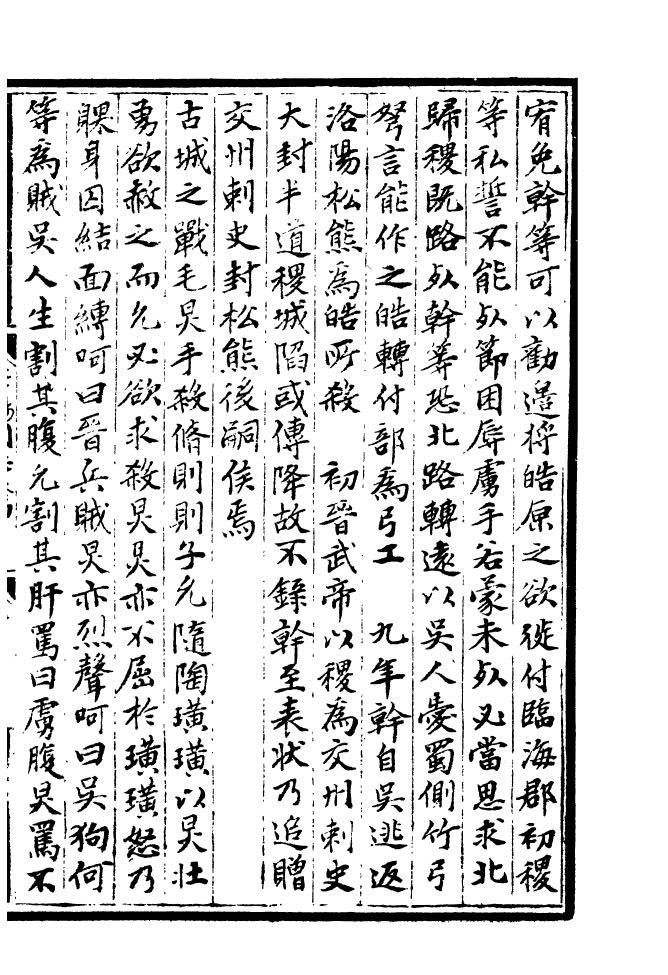 宥免幹等可以勸邉将皓原之欲徙付臨海郡初稷
等私誓不能死節困辱虜手若蒙未死必當思求北
歸稷既路死幹等恐北路轉逺以吳人愛蜀側竹弓
弩言能作之皓轉付部為弓工　九年幹自吳逃返
洛陽松熊為皓所殺　初晉武帝以稷為交州刺史
大封半道稷城陷或傳降故不録幹至表状乃追贈
交州刺史封松熊後嗣侯焉
古城之戰毛炅手殺脩則則子允隨陶璜璜以炅壯
勇欲赦之而允必欲求殺炅炅亦不屈於璜璜怒乃
躶身囚結面縳呵曰晉兵賊炅亦烈聲呵曰吳狗何
等為賊吳人生割其腹允割其肝罵曰虜腹炅罵不